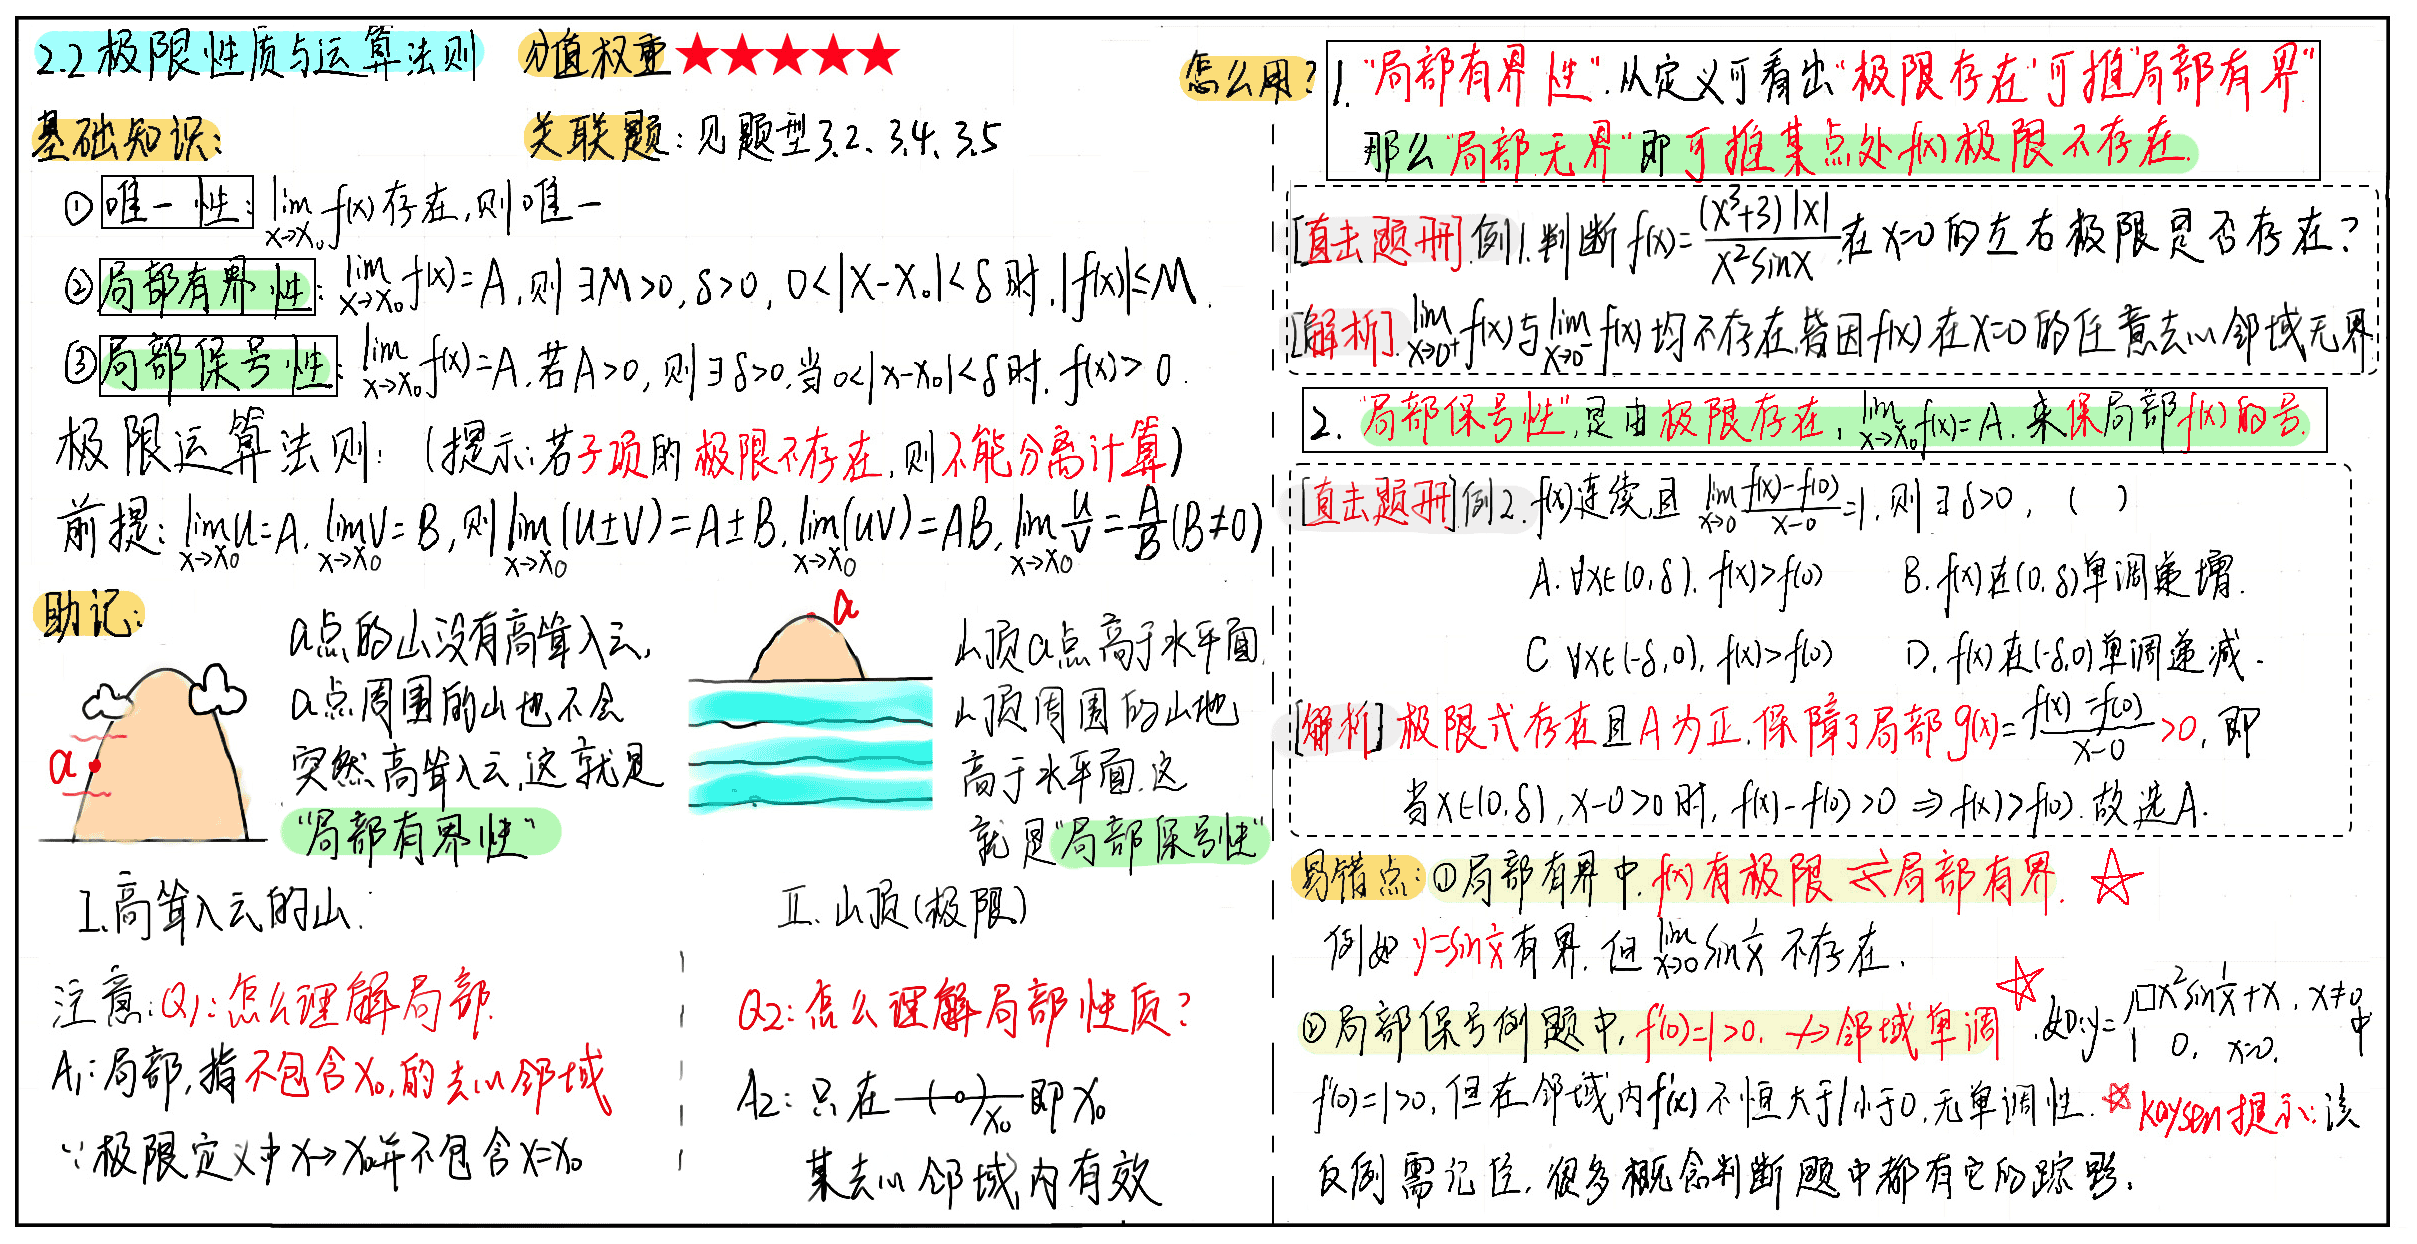 2.2 极限性质与运算法则 分值权重★★★★★
基础知识: 关联题: 见题型3.2、3.4、3.5
① 唯一性: lim x→x₀ f(x)存在,则唯一
② 局部有界性: lim x→x₀ f(x)=A,则∃M>0,δ>0, 0<|x-x₀|<δ时,|f(x)|≤M.
③ 局部保号性: lim x→x₀ f(x)=A.若A>0,则∃δ>0.当0<|x-x₀|<δ时. f(x)>0.
极限运算法则: (提示:若子项的极限不存在,则不能分离计算)
前提: lim x→x₀ u=A. lim x→x₀ v=B,则 lim x→x₀ (u±v)=A±B. lim x→x₀ (uv)=AB. lim x→x₀ u/v=A/B(B≠0)
助记:
a点的山没有高耸入云,
a点周围的山也不会
突然高耸入云,这就是
"局部有界性"
a
I.高耸入云的山.
a
山顶a点高于水平面,
山顶周围的山地
高于水平面.这
就是"局部保号性"
II. 山顶(极限)
注意:Q1:怎么理解局部.
A1:局部,指不包含x₀,的去心邻域
∵极限定义中x→x₀并不包含x=x₀
Q2:怎么理解局部性质?
A2:只在 x₀ 即x₀
某去心邻域内有效
怎么用? 1. "局部有界性".从定义可看出"极限存在"可推"局部有界"
那么"局部无界"即可推某点处f(x)极限不存在.
[直击题册]例1.判断f(x)=(x³+3)|x|/x²sinx.在x=0的左右极限是否存在?
[解析]. lim x→0⁺ f(x)与lim x→0⁻ f(x)均不存在,皆因f(x)在x=0的任意去心邻域无界
2. "局部保号性",是由极限存在, lim x→x₀ f(x)=A.来保局部f(x)的号.
[直击题册]例2. f(x)连续,且 lim x→0 f(x)-f(0)/x-0=1,则∃δ>0, ( )
A.∀x∈(0,δ). f(x)>f(0) B.f(x)在(0.δ)单调递增.
C ∀x∈(-δ,0), f(x)>f(0) D. f(x)在(-δ,0)单调递减.
[解析]极限式存在且A为正.保障了局部g(x)=f(x)-f(0)/x-0>0,即
当x∈(0,δ),x-0>0时, f(x)-f(0)>0⇒f(x)>f(0).故选A.
易错点:①局部有界中.f(x)有极限⇄局部有界. ☆
例如 y=sin1/x有界.但 lim x→0 sin1/x 不存在.
②局部保号例题中, f'(0)=1>0. ↛邻域单调☆.如:y={x²sin1/x+x, x≠0 0, x=0. 中
f'(0)=1>0,但在邻域内f'(x)不恒大于/小于0,无单调性. ☆Kaysen提示:该
反例需记住,很多概念判断题中都有它的踪影.